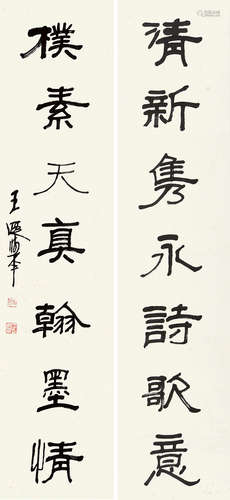 清新雋永詩歌意
樸素天真翰墨情